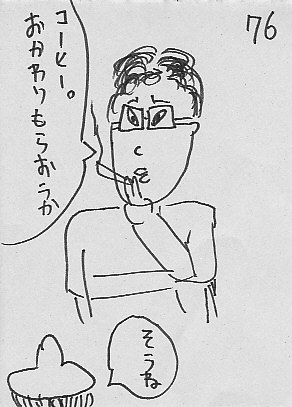 76
コーヒー。
おかわりもらおうか
そうね